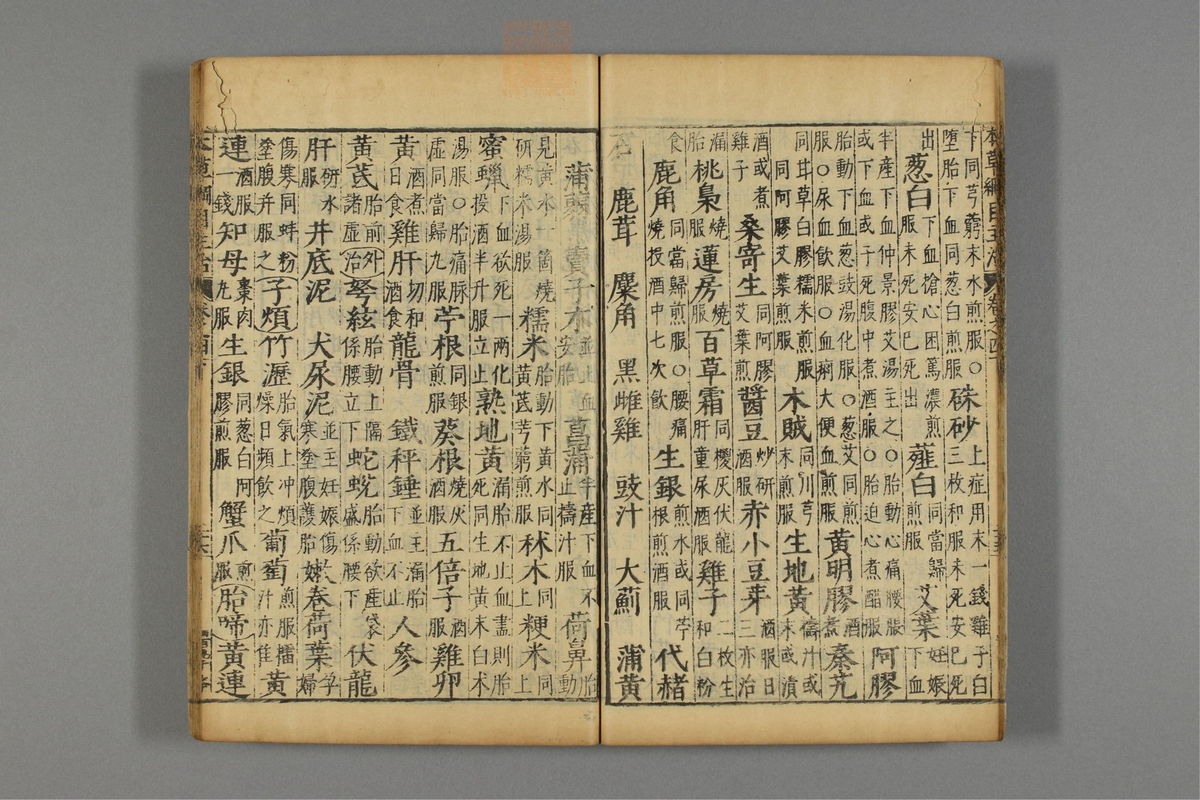 本草綱目主治 卷之四
下同芎藭末水煎服○
墮胎下血同葱白煎服
硃砂
上症用末一錢雞子白
三枚和服未死安已死
出
葱白
下血搶心困篤濃煎
服未死安已死出
薤白
同當歸
煎服
艾葉
妊娠
下血
半產下血仲景膠艾湯主之○胎動心痛腰脹
或下血或子死腹中煮酒服○胎迫心煮醋服
阿膠
胎動下血葱豉湯化服○葱艾同煎
服○尿血飲服○血痢大便血煎服
黃明膠
酒
煮
秦艽
同甘草白膠糯米煎服
同阿膠艾葉煎服
木賊
同川芎
末煎服
生地黃
擣汁或
末或漬
酒或煮
雞子
桑寄生
同阿膠
艾葉煎
醬豆
炒研
酒服
赤小豆芽
酒服日
三亦治
漏
胎
桃梟
燒
服
蓮房
燒
服
百草霜
同椶灰伏龍
肝童尿酒服
雞子
二枚生
和白粉
食
鹿角
同當歸煎服○腰痛
燒投酒中七次飲
生銀
煎水或同苧
根煎酒服
代赭
石 鹿茸 麋角 黑雌雞 豉汁 大薊 蒲黃
蒲蒻 賣子木
並止血
安胎
菖蒲
半產下血不
止擣汁服
荷鼻
胎
動
見黃水一箇燒
研糯米湯服
糯米
胎動下黃水同
黃芪芎藭煎服
秫米
同
上
粳米
同
上
蜜蠟
下血欲死一兩化
投酒半升服立止
熟地黃
漏胎不止血盡則胎
死同生地黃末白朮
湯服○胎痛脉
虛同當歸丸服
苧根
同銀
煎服
葵根
燒灰
酒服
五倍子
酒
服
雞卵
黃
酒煮
日食
雞肝
切和
酒食
龍骨 鐵秤錘
並主漏胎
下血不止
人參
黃芪
胎前
諸虛
外治
弩絃
胎動上膈
係腰立下
蛇蛻
胎動欲產袋
盛係腰下
伏龍
肝
研水
服
井底泥 犬尿泥
並主妊娠傷
寒塗腹護胎
嫩卷荷葉
孕
婦
傷寒同蚌粉
塗腹并服之
子煩 竹瀝
胎氣上冲煩
燥日頻飲之
葡萄
煎服擣
汁亦佳
黃
連
酒服
一錢
知母
棗肉
丸服
生銀
同葱白阿
膠煎服
蟹爪
煎
服
胎啼 黃連